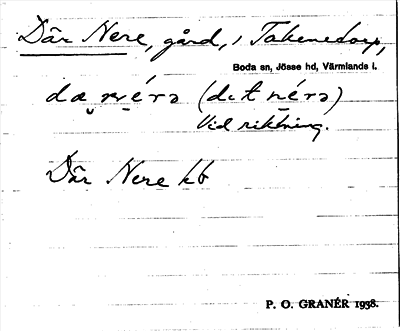 Där Nere, gård, i Takenetorp,
Boda sn, Jösse hd, Värmlands l.
dæ̭ ṉéra (dɩt ṉéra)
Vid riktning.
Där Nere kb
P. O. GRANÉR 1938.